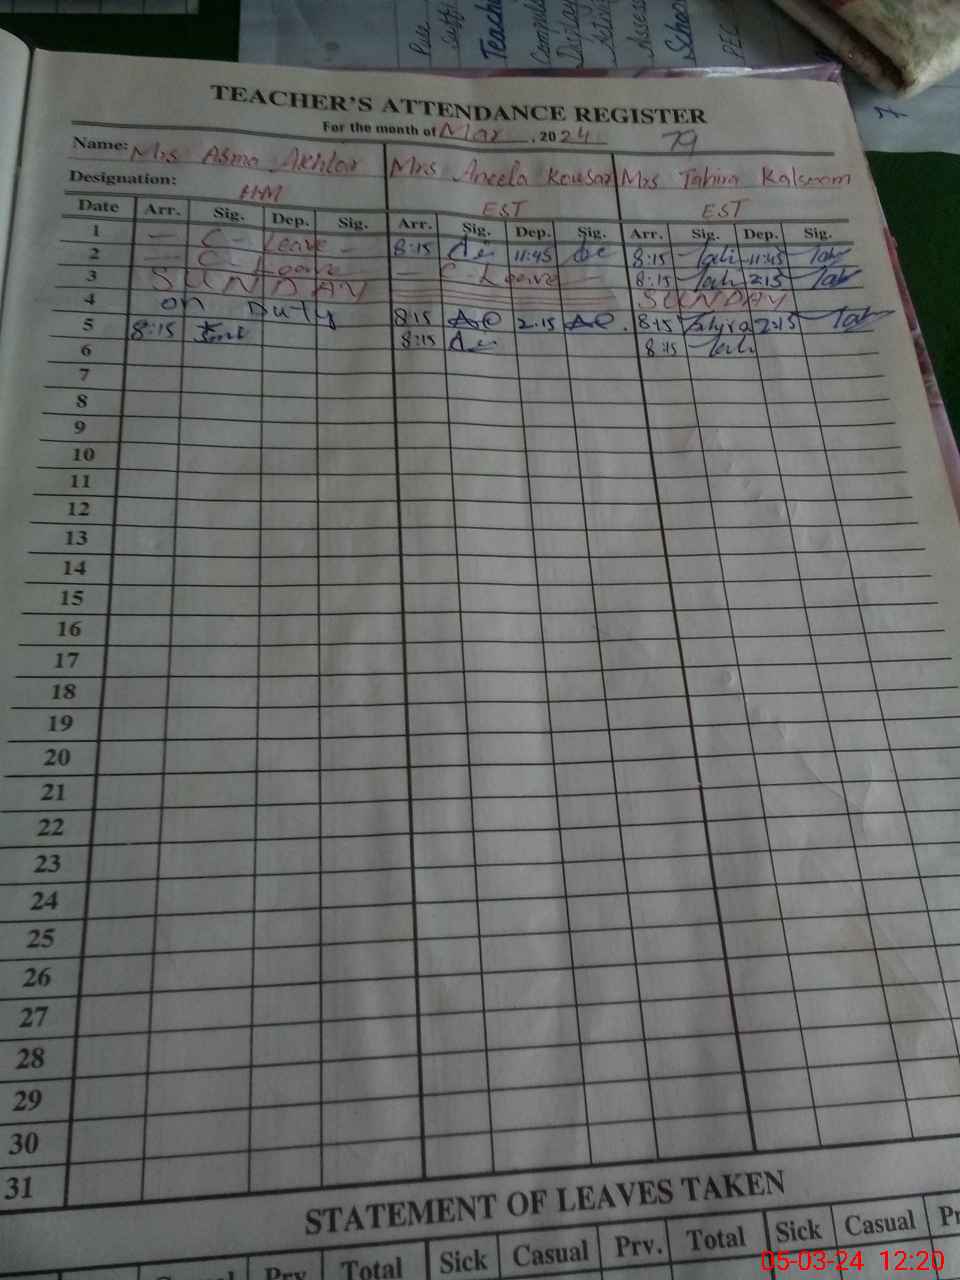 Pee
Suffi
Teache
Display
Activi
Assess
School
PEC
TEACHER'S ATTENDANCE REGISTER
For the month of Mar, 2024 79
Name: Mrs Asma Akhtar Mrs Aneela Kousar Mrs Tahira Kalsoom
Designation: HM EST EST
Date Arr. Sig. Dep. Sig. Arr. Sig. Dep. Sig. Arr. Sig. Dep. Sig.
1 — C - Leave - 8:15 11:45 8:15 11:45
2 — C - Leave — C - Leave — 8:15 2:15
3 SUNDAY SUNDAY
4 on Duty 8:15 2:15 8:15 2:15
5 8:15 8:15 8:15
6
7
8
9
10
11
12
13
14
15
16
17
18
19
20
21
22
23
24
25
26
27
28
29
30
31
STATEMENT OF LEAVES TAKEN
Casual Prv. Total Sick Casual Prv. Total Sick Casual Pr
05-03-24 12:20